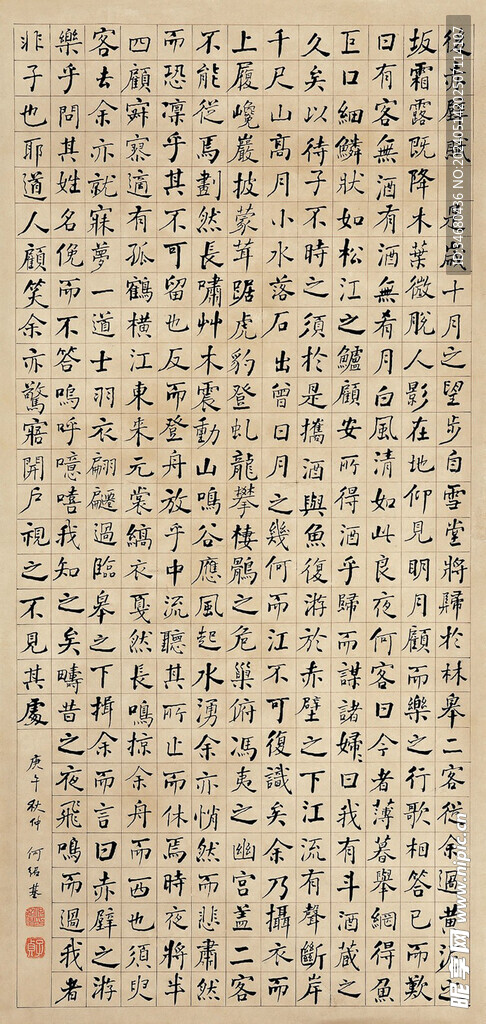 後赤壁賦是歲十月之望步自雪堂將歸於林皋二客從余過黃泥之
坂霜露既降木葉微脫人影在地仰見明月顧而樂之行歌相答已而歎
曰有客無酒有酒無肴月白風清如此良夜何客曰今者薄暮舉網得魚
巨口細鱗狀如松江之鱸顧安所得酒乎歸而謀諸婦曰我有斗酒藏之
久矣以待子不時之須於是攜酒與魚復游於赤壁之下江流有聲斷岸
千尺山高月小水落石出曾日月之幾何而江不可復識矣余乃攝衣而
上履巉巖披蒙茸踞虎豹登虬龍攀棲鶻之危巢俯馮夷之幽宮蓋二客
不能從焉劃然長嘯艸木震動山鳴谷應風起水湧余亦悄然而悲肅然
而恐凜乎其不可留也反而登舟放乎中流聽其所止而休焉時夜將半
四顧寂寥適有孤鶴橫江東來元裳縞衣戛然長鳴掠余舟而西也須臾
客去余亦就寐夢一道士羽衣翩躚過臨皋之下揖余而言曰赤壁之游
樂乎問其姓名俛而不答嗚呼噫嘻我知之矣疇昔之夜飛鳴而過我者
非子也耶道人顧笑余亦驚寤開戶視之不見其處
庚午秋仲 何紹基
昵享网 www.nipic.cn